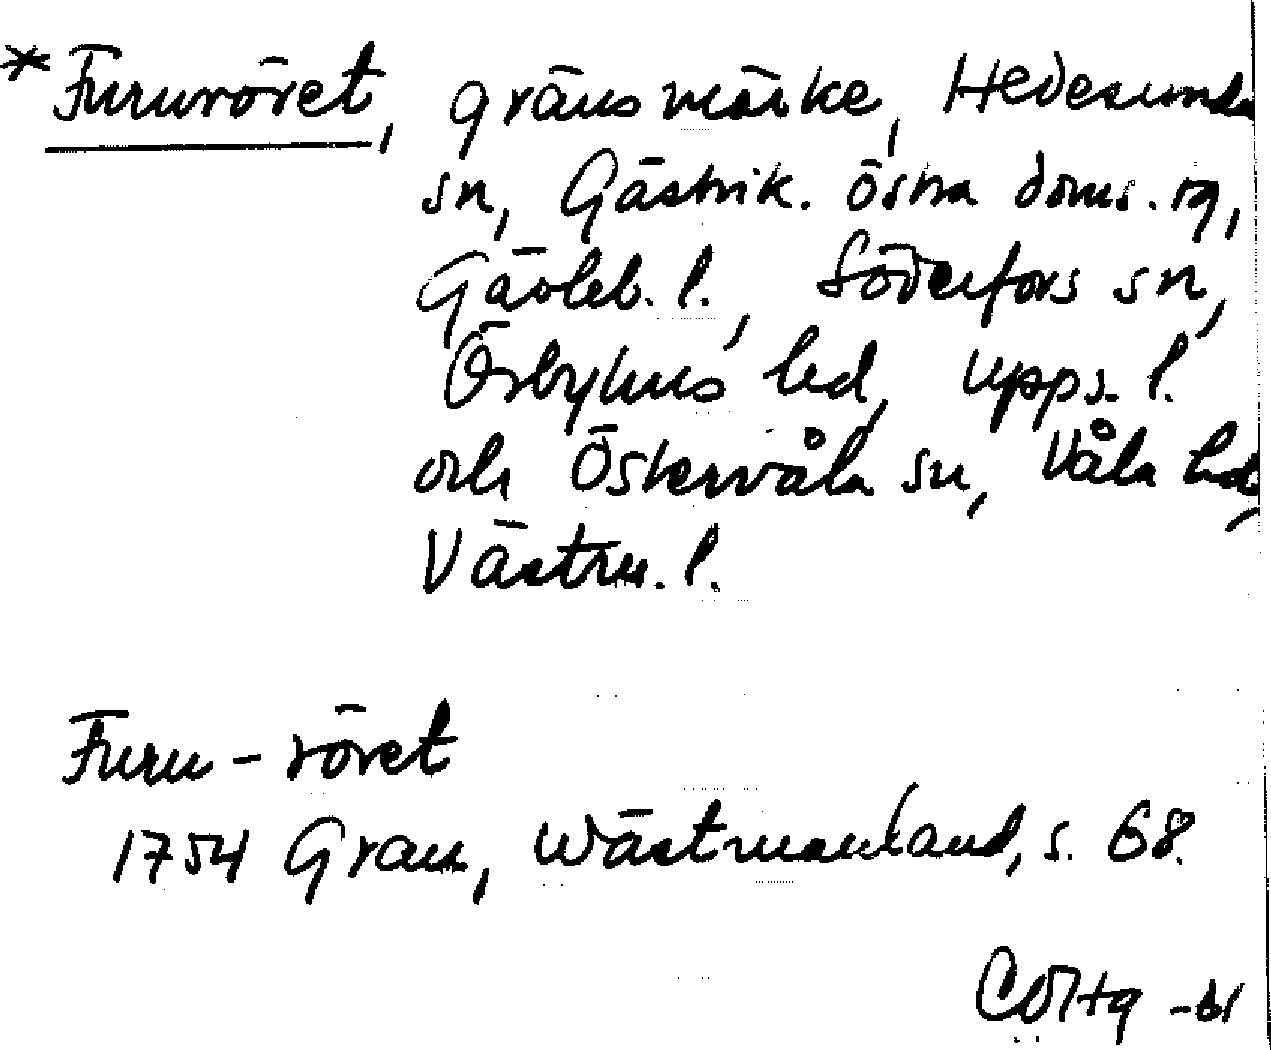 *Fururöret, gränsmärke, Hedesunda
sn, Gästrik. östra doms.,
Gävleb. l., Söderfors sn,
Örbyhus hd, Upps. l.
och Östervåla sn, Våla hd,
Västm. l.
Furu-röret
1754 Grau, Wästmanland, s. 68.